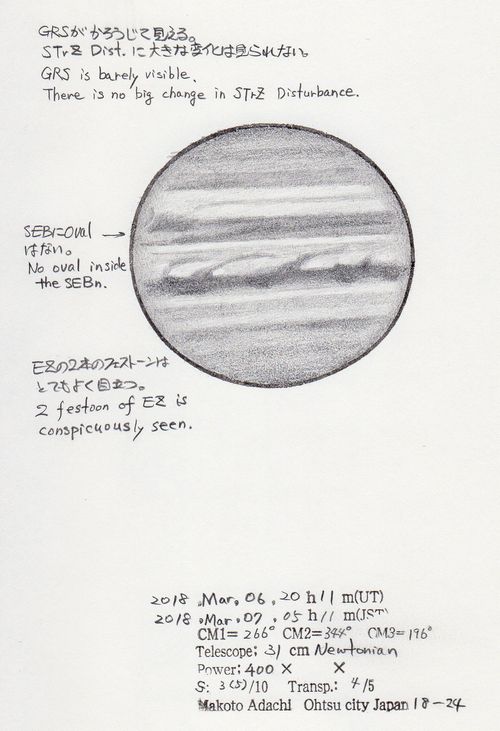 GRSがかろうじて見える。
STrZ Dist.に大きな変化は見られない。
GRS is barely visible.
There is no big change in STrZ Disturbance.
SEBnにoval →
はない。
No oval inside
the SEBn.
EZの2本のフェストーンは
とてもよく目立つ。
2 festoon of EZ is
conspicuously seen.
2018 .Mar. 06 . 20 h 11 m(UT)
2018 .Mar. 07 . 05 h 11 m(JST)
CM1= 266° CM2= 344° CM3= 196°
Telescope; 31 cm Newtonian
Power; 400 × ×
S: 3(5)/10 Transp.: 4/5
Makoto Adachi Ohtsu city Japan 18-24